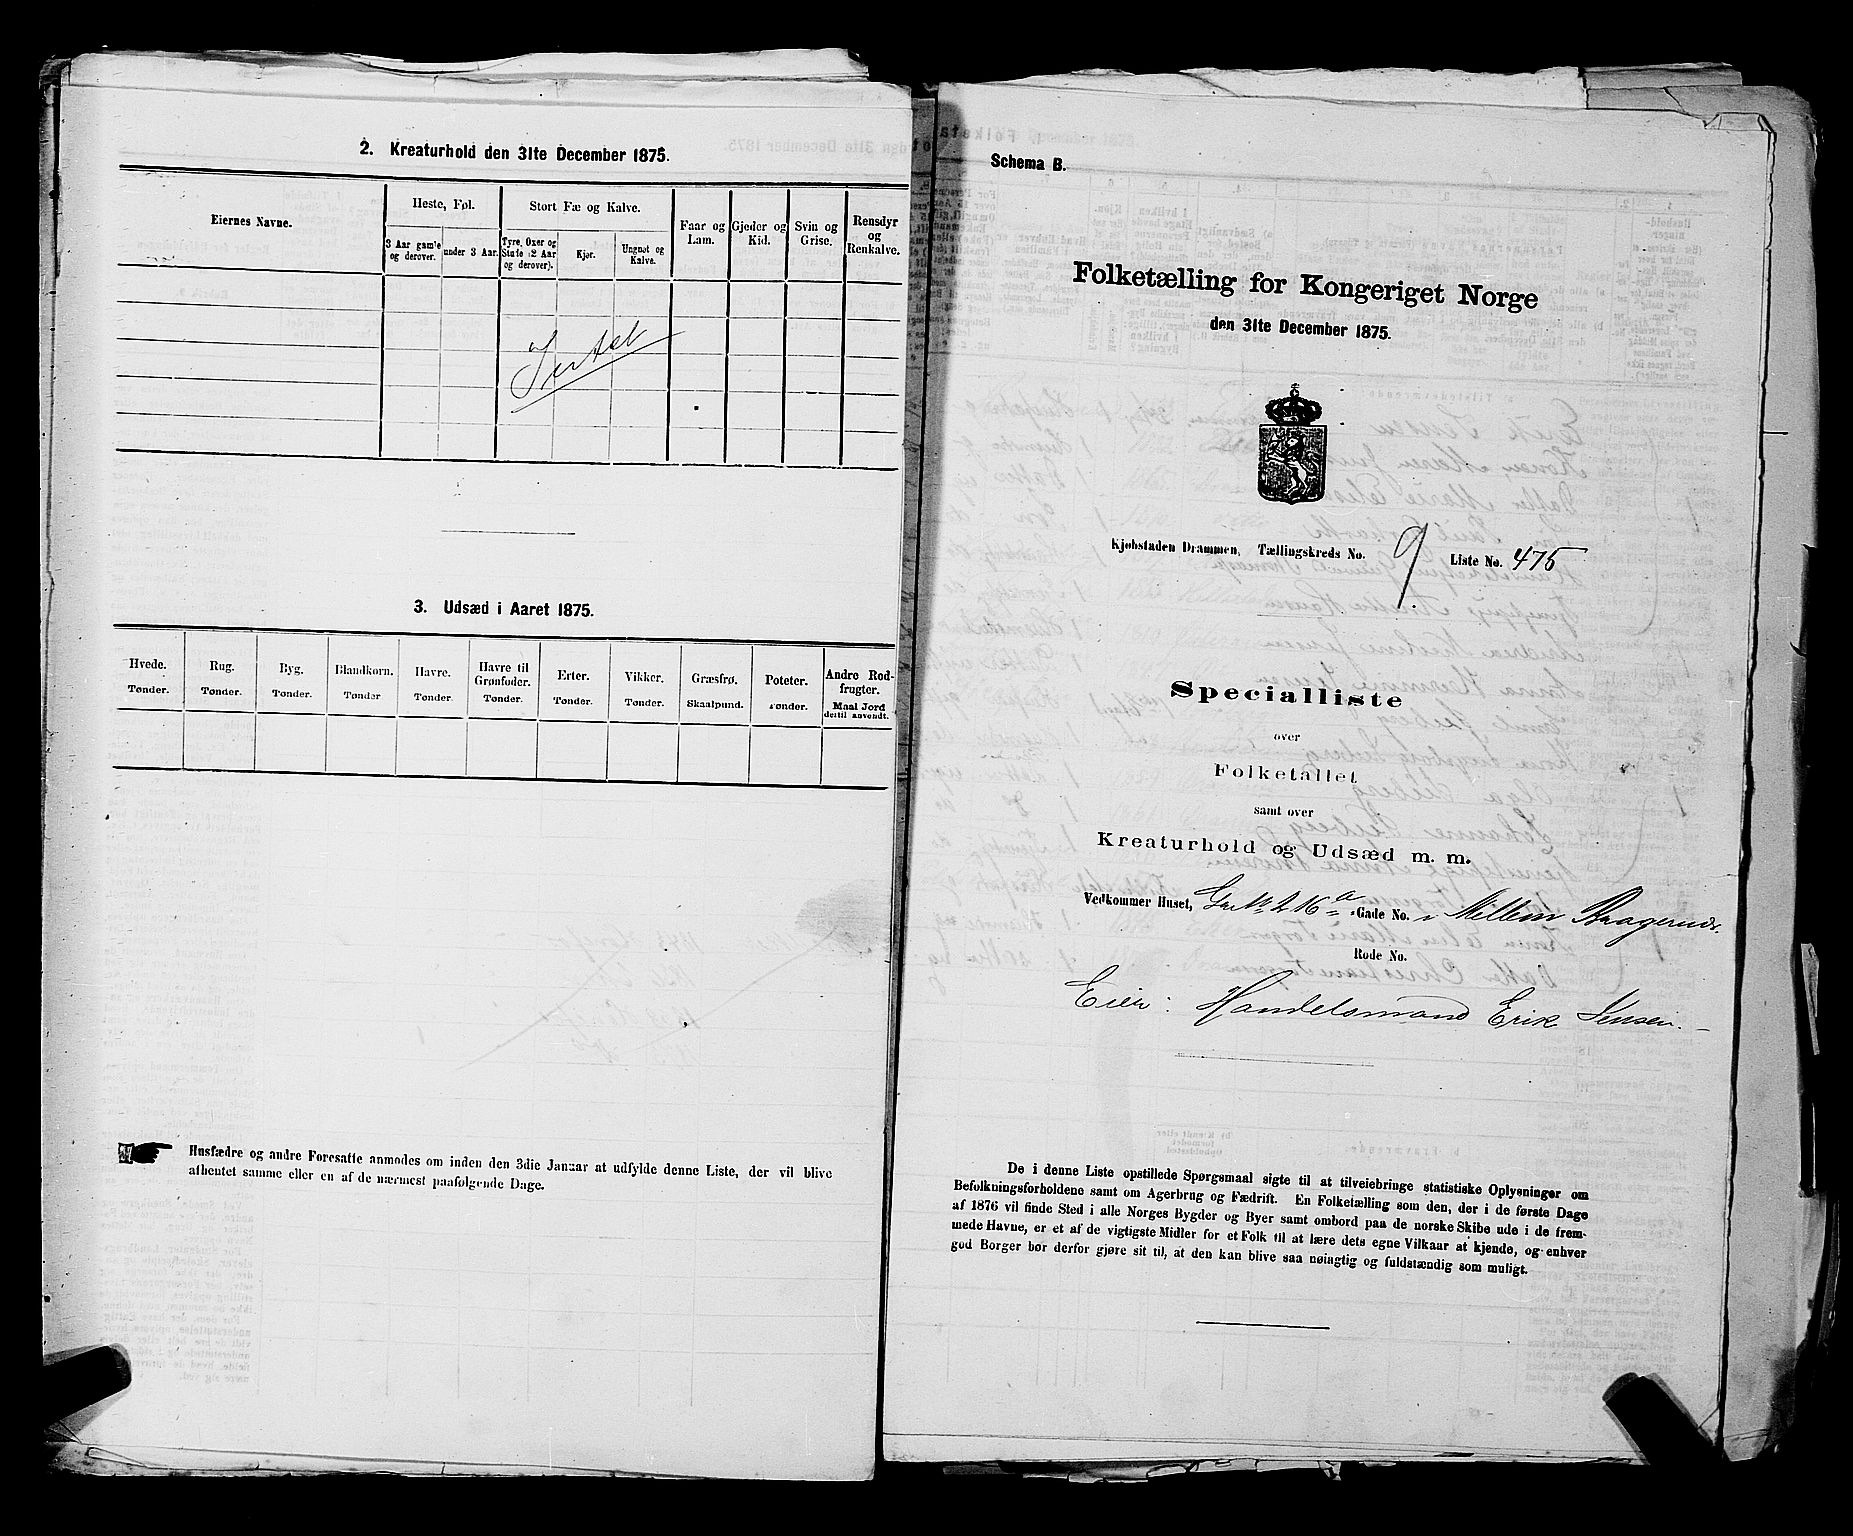 2. Kreaturhold den 31te December 1875.
Eiernes Navne.
Heste, Føl.
3 Aar gamle og derover.
under 3 Aar.
Stort Fæ og Kalve.
Tyre, Oxer og Stude (2 Aar og derover).
Kjør.
Ungnøt og Kalve.
Faar og Lam.
Gjeder og Kid.
Svin og Grise.
Rensdyr og Renkalve.
3. Udsæd i Aaret 1875.
Hvede. Tønder.
Rug. Tønder.
Byg. Tønder.
Blandkorn. Tønder
Havre. Tønder
Havre til Grønfoder. Tønder
Erter. Tønder.
Vikker. Tønder.
Græsfrø. Skaalpund.
Poteter. Tønder.
Andre Rodfrugter. Maal Jord dertil anvendt.
Husfædre og andre Foresatte anmodes om inden den 3die Januar at udfylde denne Liste, der vil blive
afhentet samme eller en af de nærmest paafølgende Dage.
Schema B.
Folketælling for Kongeriget Norge
den 31te December 1875.
Kjøbstaden Drammen, Tællingskreds No. 9 Liste No. 475
Specialliste
over
Folketallet
samt over
Kreaturhold og Udsæd m. m.
Vedkommer Huset, 216 a Gade No. i Mellem Bragernæs.
Rode No.
Eier: Handelsmand Erik Jensen.
De i denne Liste opstillede Spørgsmaal sigte til at tilveiebringe statistiske Oplysninger om
Befolkningsforholdene samt om Agerbrug og Fædrift. En Folketælling som den, der i de første Dage
af 1876 vil finde Sted i alle Norges Bygder og Byer samt ombord paa de norske Skibe ude i de frem-
mede Havne, er et af de vigtigste Midler for et Folk til at lære dets egne Vilkaar at kjende, og enhver
god Borger bør derfor gjøre sit til, at den kan blive saa nøiagtig og fuldstændig som muligt.